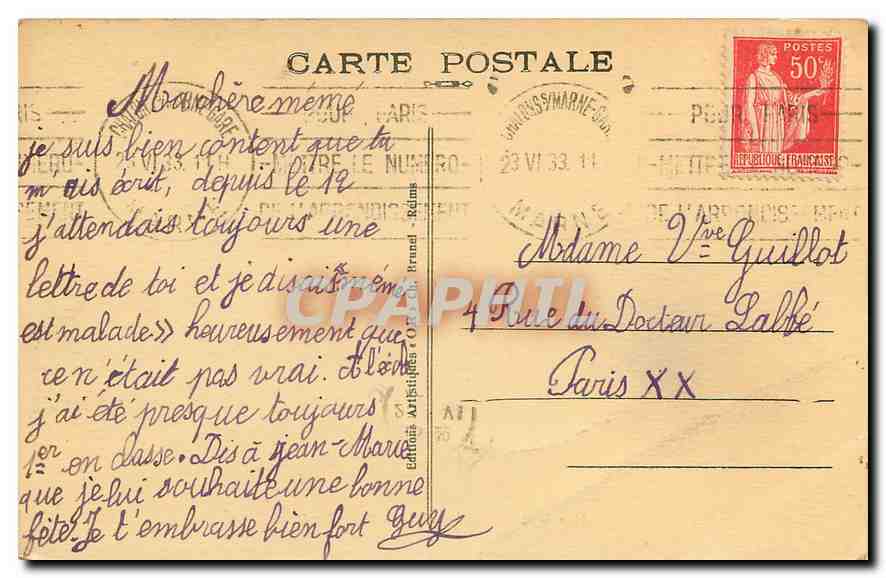 CARTE POSTALE
POSTES
50c
REPUBLIQUE FRANÇAISE
Ma chère mémé
je suis bien content que tu
m'ais écrit, depuis le 12
j'attendais toujours une
lettre de toi et je disais "mémé
est malade" heureusement que
ce n'était pas vrai. A l'école
j'ai été presque toujours
1er en classe. Dis à jean-Marie
que je lui souhaite une bonne
fête. Je t'embrasse bien fort Guy
Editions Artistiques «OR» Ch. Brunel - Reims
CHALONS S/MARNE-GARE
23 VI 33. 11H
MARNE
POUR PARIS
METTRE LE NUMERO
DE L'ARRONDISSEMENT
CHALONS S/MARNE-GARE
23 VI 33. 11
MARNE
POUR PARIS
METTRE
DE L'ARRONDISSEMENT
Madame Vve Guillot
4 Rue du Docteur Labbé
Paris XX
CPAPHIL